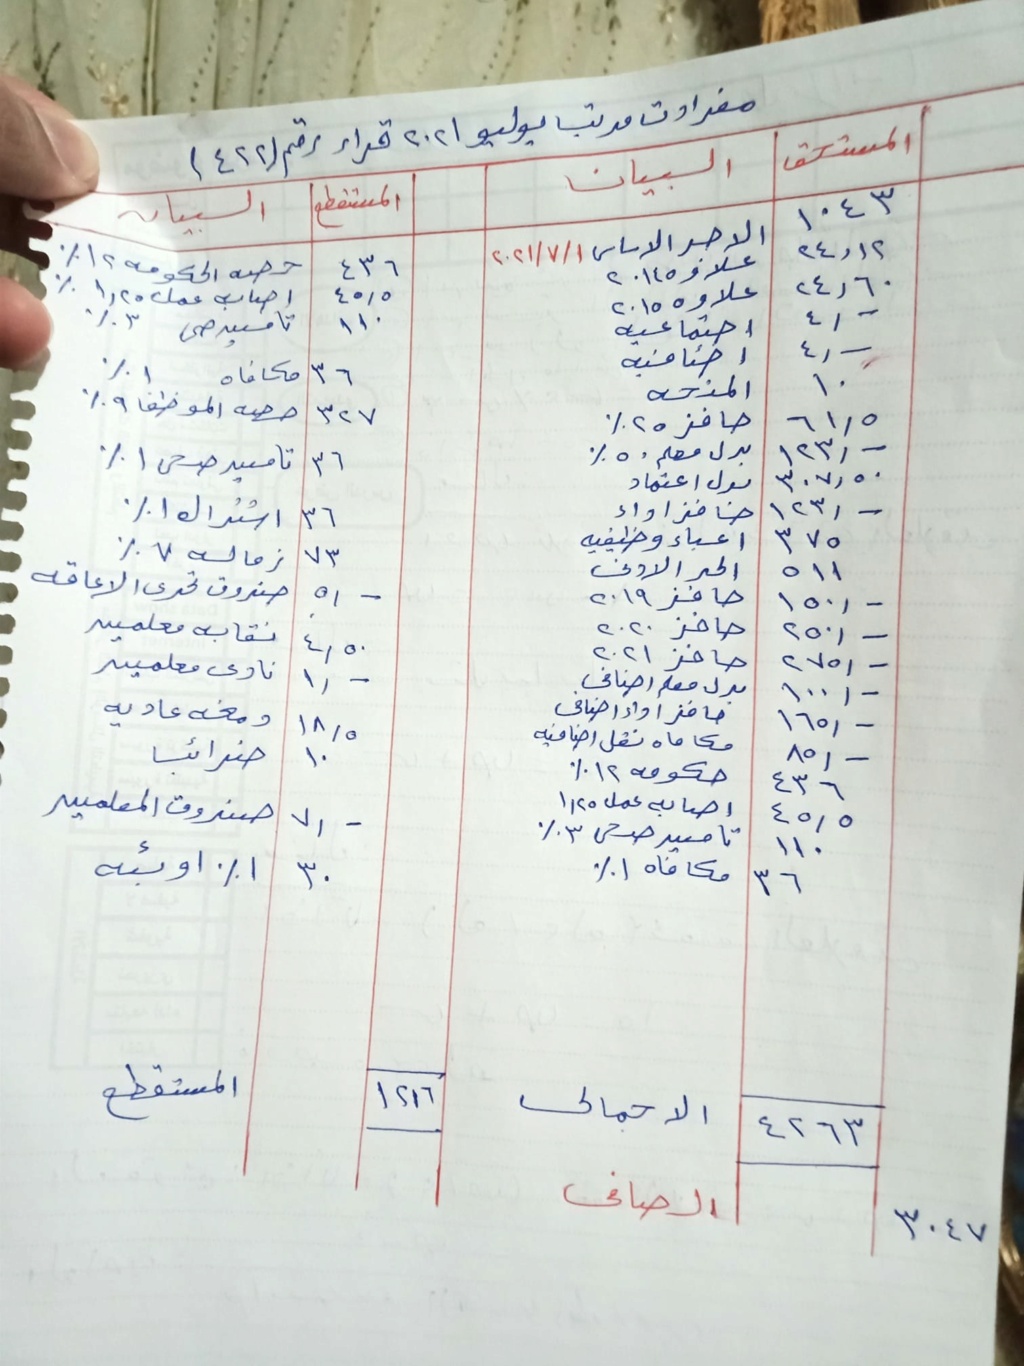 مفردات مرتب يوليو ٢٠٢١ قرار رقم (٤٢٢)
المستحق | البيان | المستقطع | البيان
١٠٤٣ الاجر الاساسى ٢٠٢١/٧/١
٢٤,١٢ علاوه ٢٠١٤
٢٤,٦٠ علاوه ٢٠١٥
٤,- اجتماعيه
٤,- اضافيه
١٠ المنحه
٦١,٥ حافز ٢٥٪
١٢٣,- بدل معلم ٥٠٪
٣٠٧,٥٠ بدل اعتماد
١٢٣,- حافز اداء
٣٧٥ اعباء وظيفيه
٥١١ الحد الادنى
١٥٠,- حافز ٢٠١٩
٢٥٠,- حافز ٢٠٢٠
٢٧٥,- حافز ٢٠٢١
١٠٠,- بدل معلم اضافى
١٦٥,- حافز اداء اضافى
٨٥,- مكافاه نقل اضافيه
٤٣٦ حكومه ١٢٪
٤٥,٥ اصابه عمل ١,٢٥
١١٠ تامين صحى ٣٪
٣٦ مكافاه ١٪
٤٢٦٣ الاجمالى
٤٣٦ حصه الحكومه ١٢٪
٤٥,٥ اصابه عمل ١,٢٥٪
١١٠ تامين صحى ٣٪
٣٦ مكافاه ١٪
٣٢٧ حصه الموظف ٩٪
٣٦ تامين صحى ١٪
٣٦ اشتراك ١٪
٧٣ زماله ٧٪
٥,- صندوق تحدى الاعاقه
٤,٥٠ نقابه معلمين
١,- نادى معلمين
١٨,٥ دمغه عاديه
١٠ ضرائب
٧,- صندوق المعلمين
٣٠ ١٪ اوبئه
١٢١٦ المستقطع
الصافى ٣٠٤٧